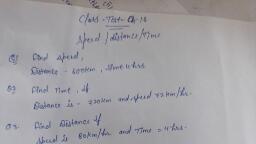 Class - Test - Ch-18
Speed / distance / Time
Q1 Find speed,
Distance - 600km, time 4hrs
Q2 Find Time, if
Distance is - 220km and speed 72km/hr.
Q3. Find Distance if
speed is 80km/hr and Time = 4hrs.